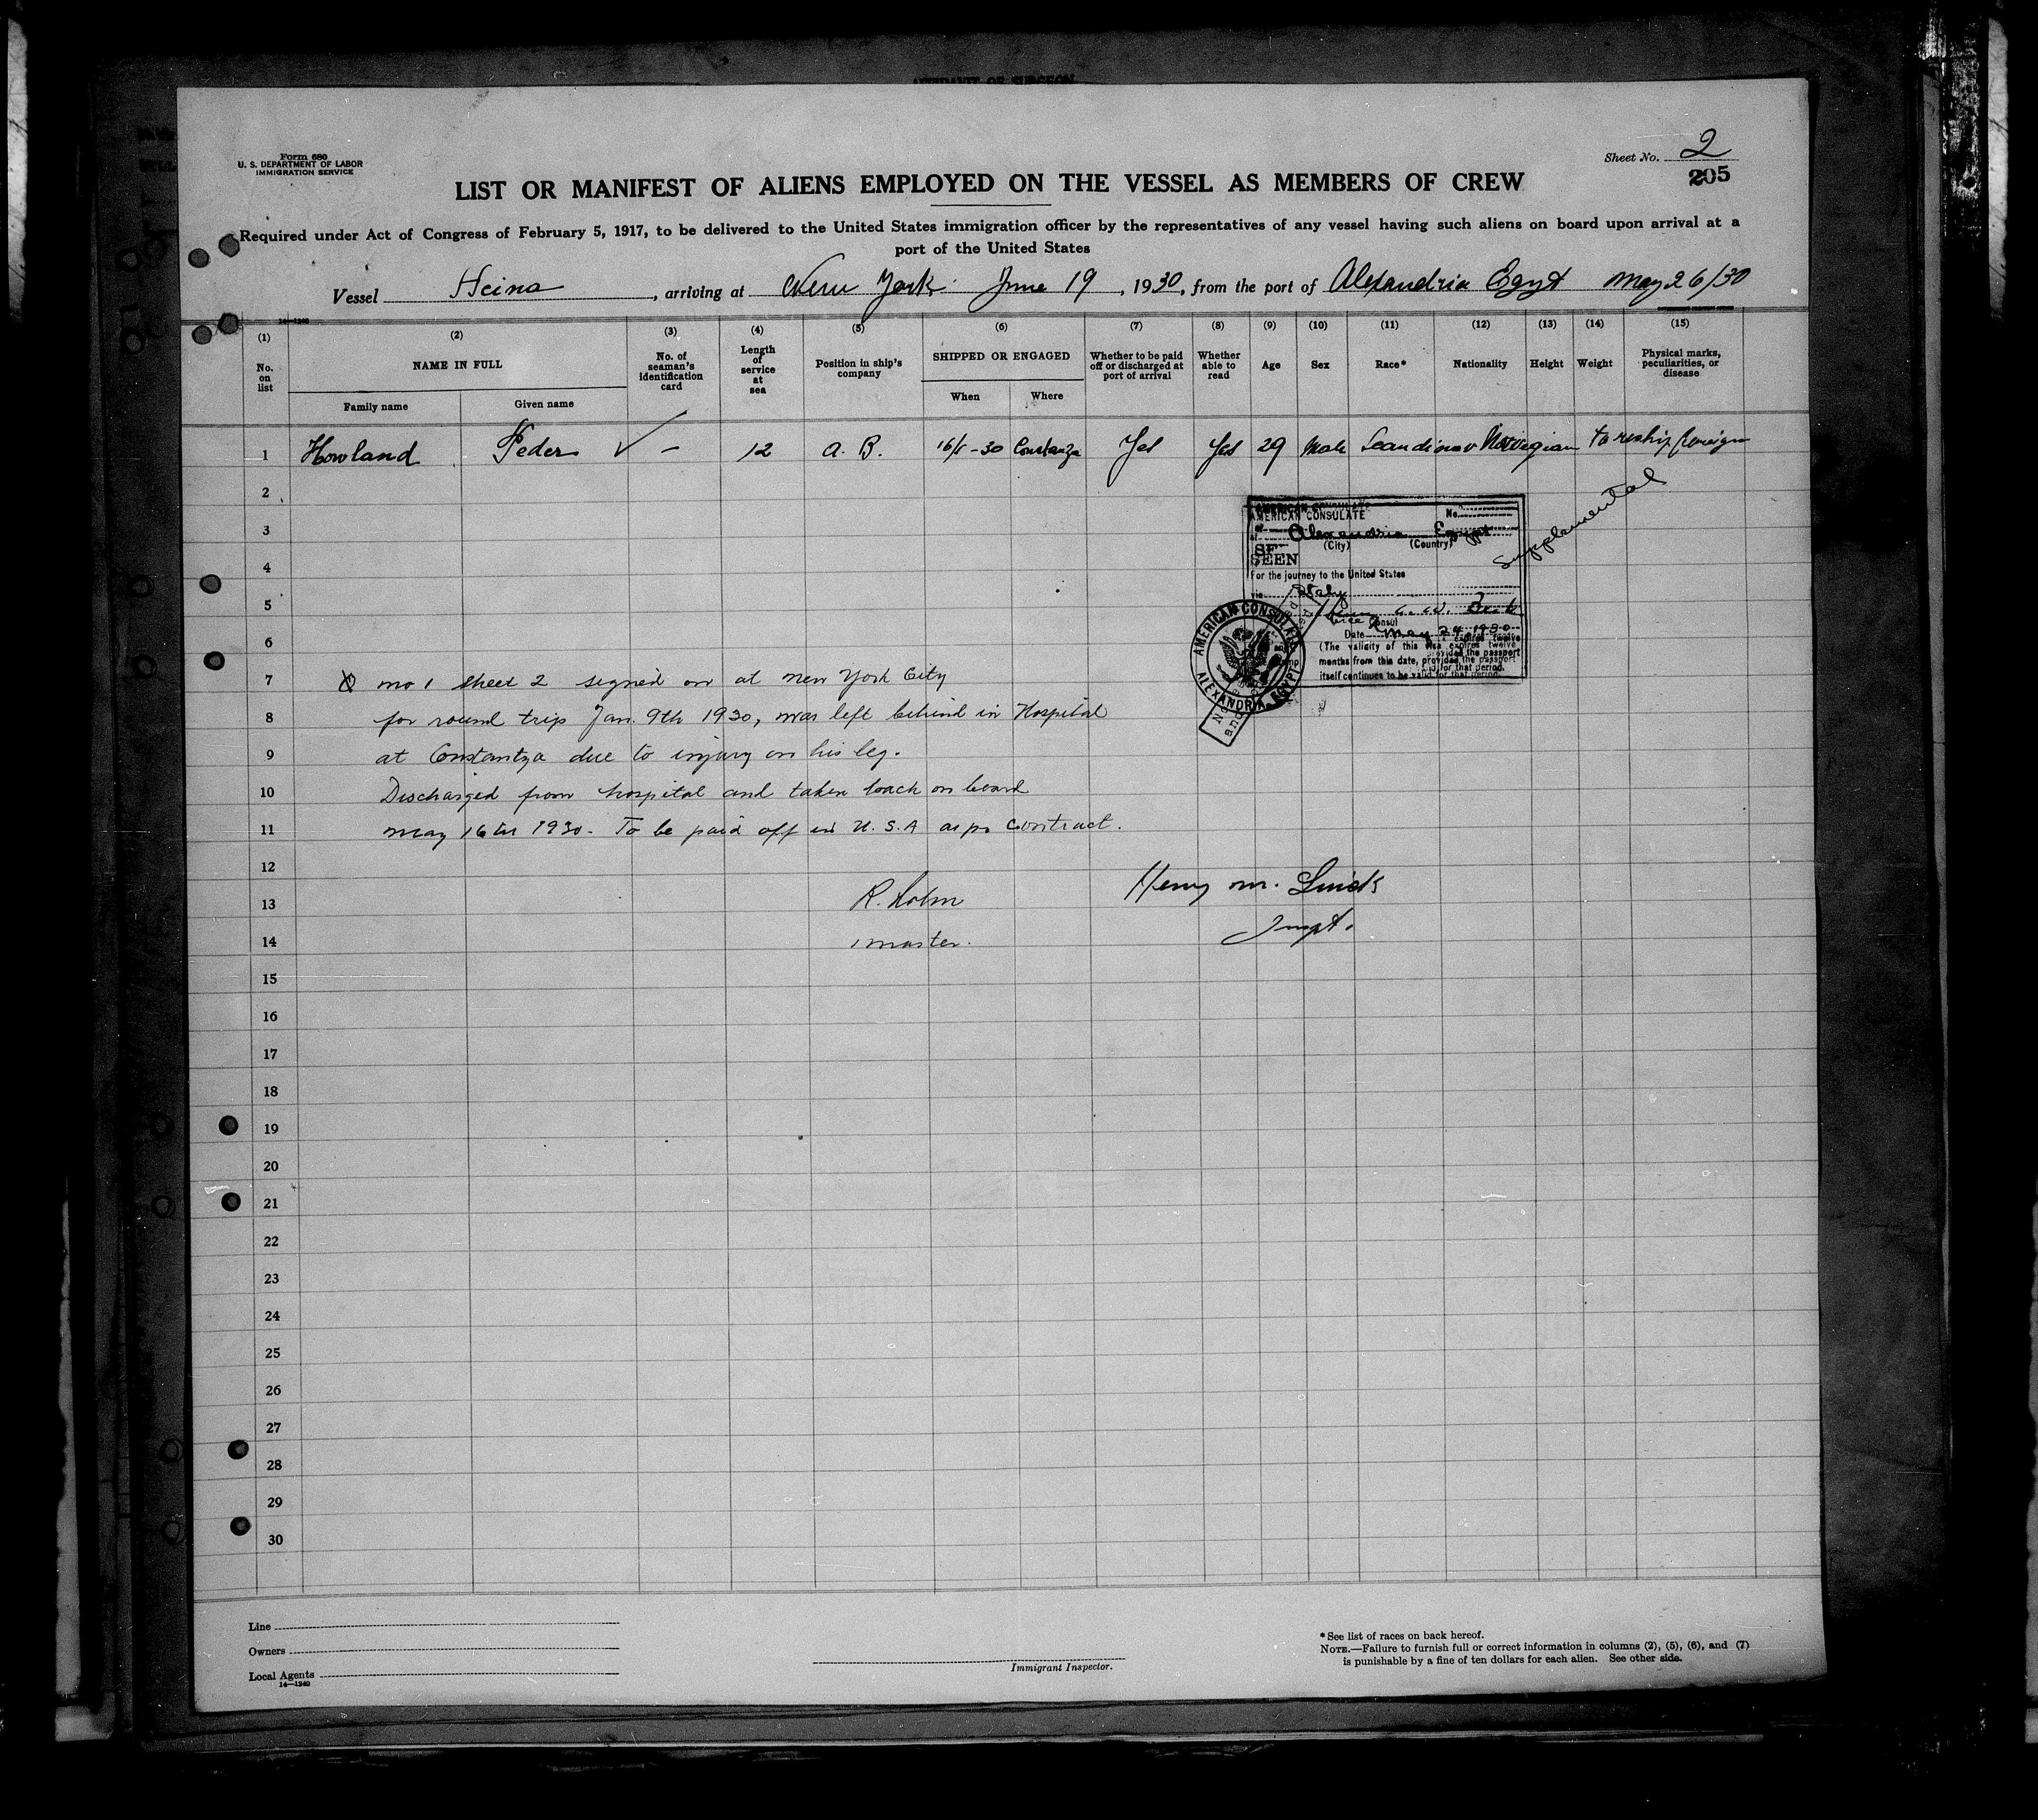 AFFIDAVIT OF SURGEON
Form 680
U. S. DEPARTMENT OF LABOR
IMMIGRATION SERVICE
Sheet No. 2
205
LIST OR MANIFEST OF ALIENS EMPLOYED ON THE VESSEL AS MEMBERS OF CREW
Required under Act of Congress of February 5, 1917, to be delivered to the United States immigration officer by the representatives of any vessel having such aliens on board upon arrival at a
port of the United States
Vessel Heina, arriving at New York June 19, 1930, from the port of Alexandria Egypt may 26/30
14—1240
(1) (2) (3) (4) (5) (6) (7) (8) (9) (10) (11) (12) (13) (14) (15)
No. on list
NAME IN FULL
Family name
Given name
No. of seaman's identification card
Length of service at sea
Position in ship's company
SHIPPED OR ENGAGED
When
Where
Whether to be paid off or discharged at port of arrival
Whether able to read
Age
Sex
Race*
Nationality
Height
Weight
Physical marks, peculiarities, or disease
1 Howland Peder ✓ — 12 A. B. 16/5-30 Constanza Yes Yes 29 Male Scandinav Norwegian to reship foreign
Supplemental
2
3
4
5
6
AMERICAN CONSULATE No.
at Alexandria Egypt
(City) (Country)
SEEN
For the journey to the United States
via Italy
Vice Consul
Date May 24, 1930
(The validity of this visa expires twelve
months from this date, provided the passport
itself continues to be valid for that period.
AMERICAN CONSULATE
ALEXANDRIA, EGYPT
7 no 1 sheet 2 signed on at new York City
8 for round trip Jan. 9th 1930, was left behind in Hospital
9 at Constantza due to injury on his leg.
10 Discharged from hospital and taken back on board
11 may 16th 1930. To be paid off in U. S. A as pr contract.
12
13 R. Holm Henry m.
14 master. Inspt.
15
16
17
18
19
20
21
22
23
24
25
26
27
28
29
30
Line
Owners
Local Agents
14—1240
Immigrant Inspector.
* See list of races on back hereof.
NOTE.—Failure to furnish full or correct information in columns (2), (5), (6), and (7)
is punishable by a fine of ten dollars for each alien. See other side.